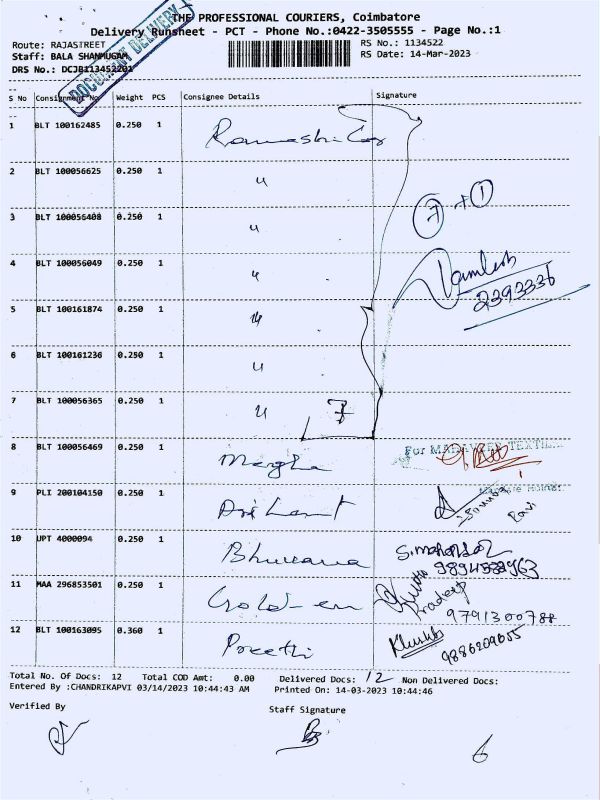 THE PROFESSIONAL COURIERS, Coimbatore
Delivery Runsheet - PCT - Phone No.:0422-3505555 - Page No.:1
Route: RAJASTREET
RS No.: 1134522
Staff: BALA SHANMUGAM
RS Date: 14-Mar-2023
DRS No.:
DOCUMENT DELIVERY
S No Consignment No. Weight PCS Consignee Details Signature
1 BLT 100162485 0.250 1
2 BLT 100056625 0.250 1 "
7 + 1
3 BLT 100056408 0.250 1 "
4 BLT 100056049 0.250 1 "
2393336
5 BLT 100161874 0.250 1 "
6 BLT 100161236 0.250 1 "
7 BLT 100056365 0.250 1 " 7
8 BLT 100056469 0.250 1 Megha
For MAHAVEER TEXTILE
9 PLI 200104150 0.250 1 Arihant
Ravi
10 UPT 4000094 0.250 1 Bhuvana
11 MAA 296853501 0.250 1 Golden Pradeep
9791300788
12 BLT 100163095 0.360 1 Preethi Khushb
9886209655
Total No. Of Docs: 12 Total COD Amt: 0.00 Delivered Docs: 12 Non Delivered Docs:
Entered By :CHANDRIKAPVI 03/14/2023 10:44:43 AM Printed On: 14-03-2023 10:44:46
Verified By
Staff Signature